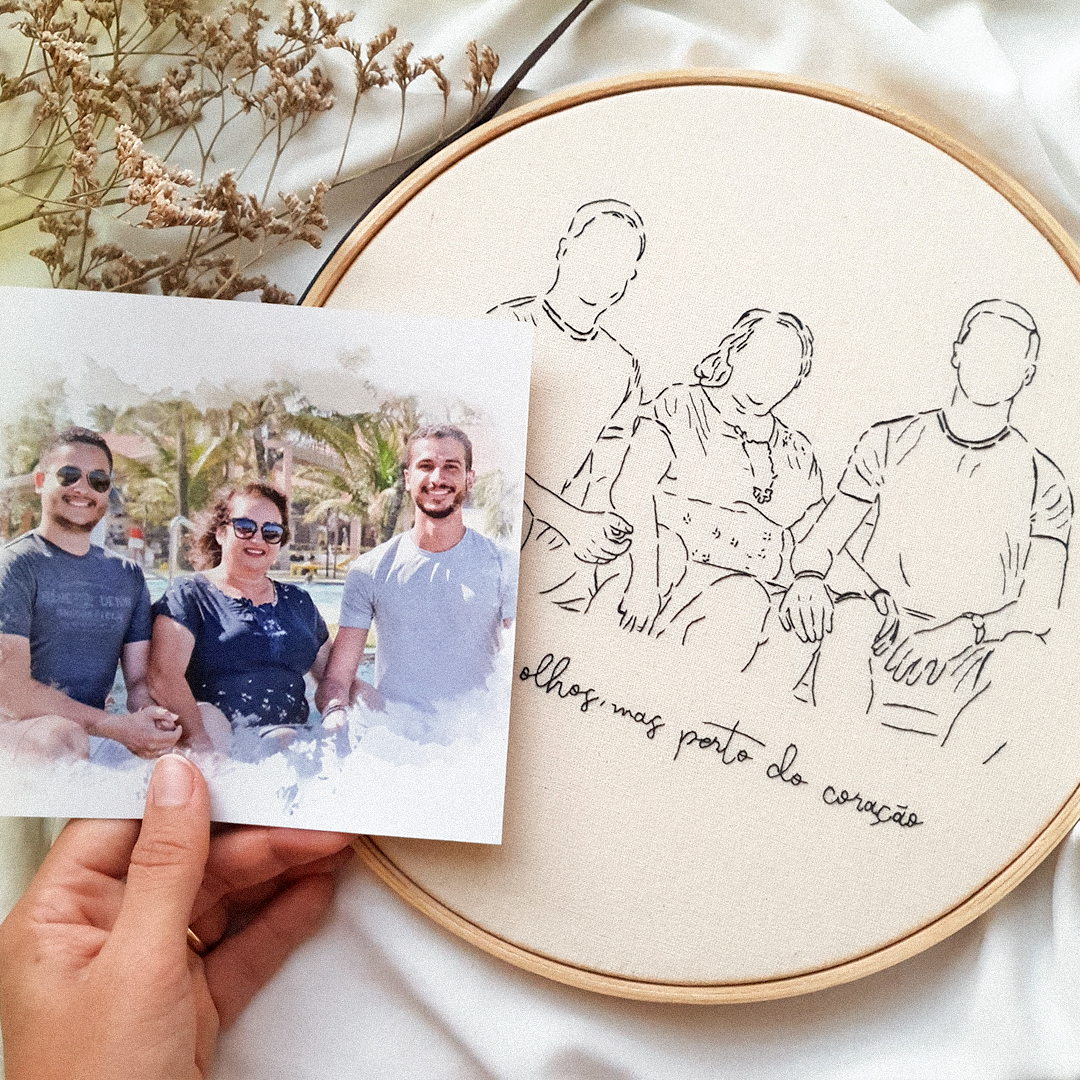 olhos, mas perto do coração